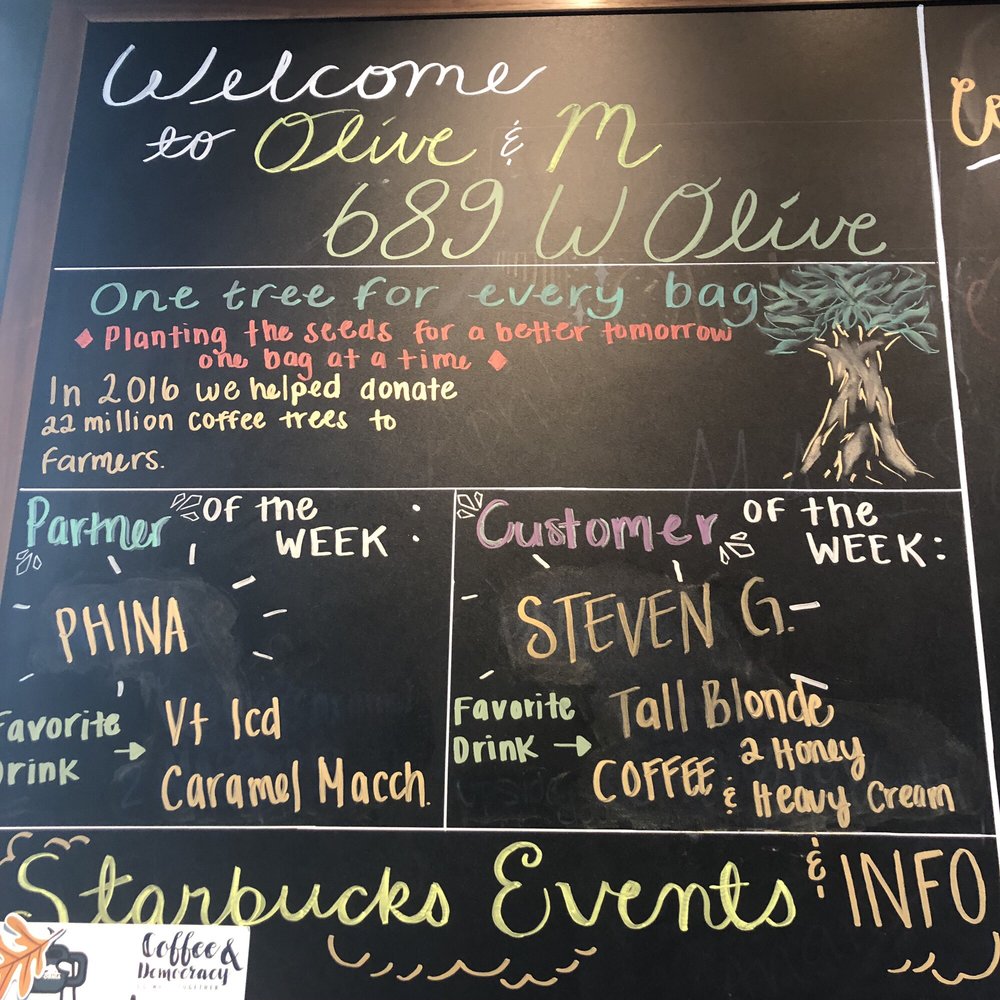 Welcome
to Olive & M
689 W Olive
One tree for every bag
Planting the seeds for a better tomorrow
one bag at a time
In 2016 we helped donate
22 million coffee trees to
Farmers.
Partner OF the
WEEK:
PHINA
Favorite
Drink → Vt Icd
Caramel Macch.
Customer OF the
WEEK:
STEVEN G.
Favorite
Drink → Tall Blonde
COFFEE & 2 Honey
Heavy Cream
Starbucks Events & INFO
Coffee &
Democracy